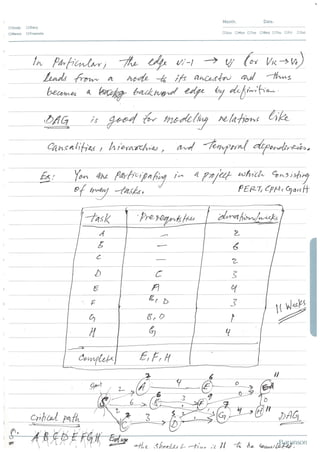 Month. Date.
In Particular, the edge Vi-1 → Vj (or Vk → Vo)
leads from a node to its ancestor and thus
becomes a backward edge by definition.
DAG is good for modeling relations like
Causalities, hierarchies, and temporal dependencies.
Ex: You are participating in a project which consisting
of many tasks. PERT, CPM, Gantt
task Prerequisites duration/weeks
A — 2
B — 6
C — 2
D C 3
E A 4
F B, D 3
G B, D 1
H G 4
Complete E, F, H
11 Weeks
Start 2 A 4 E 0 End
Critical path
DAG
A B C D E F G H End
the shortest time is 11 to be completed